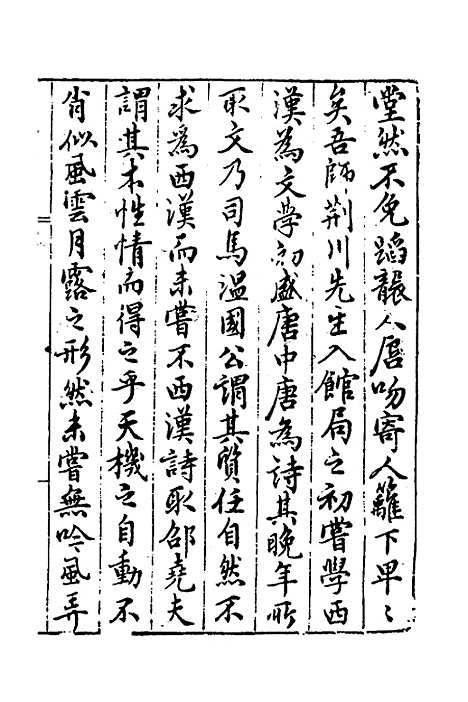 堂然不免蹈襲人唇吻寄人籬下卑〻
矣吾師荆川先生入館局之初嘗學西
漢為文學初盛唐中唐為詩其晚年所
取文乃司馬溫國公謂其質任自然不
求為西漢而未嘗不西漢詩取邵堯夫
謂其本性情而得之乎天機之自動不
肖似風雲月露之形然未嘗無吟風弄